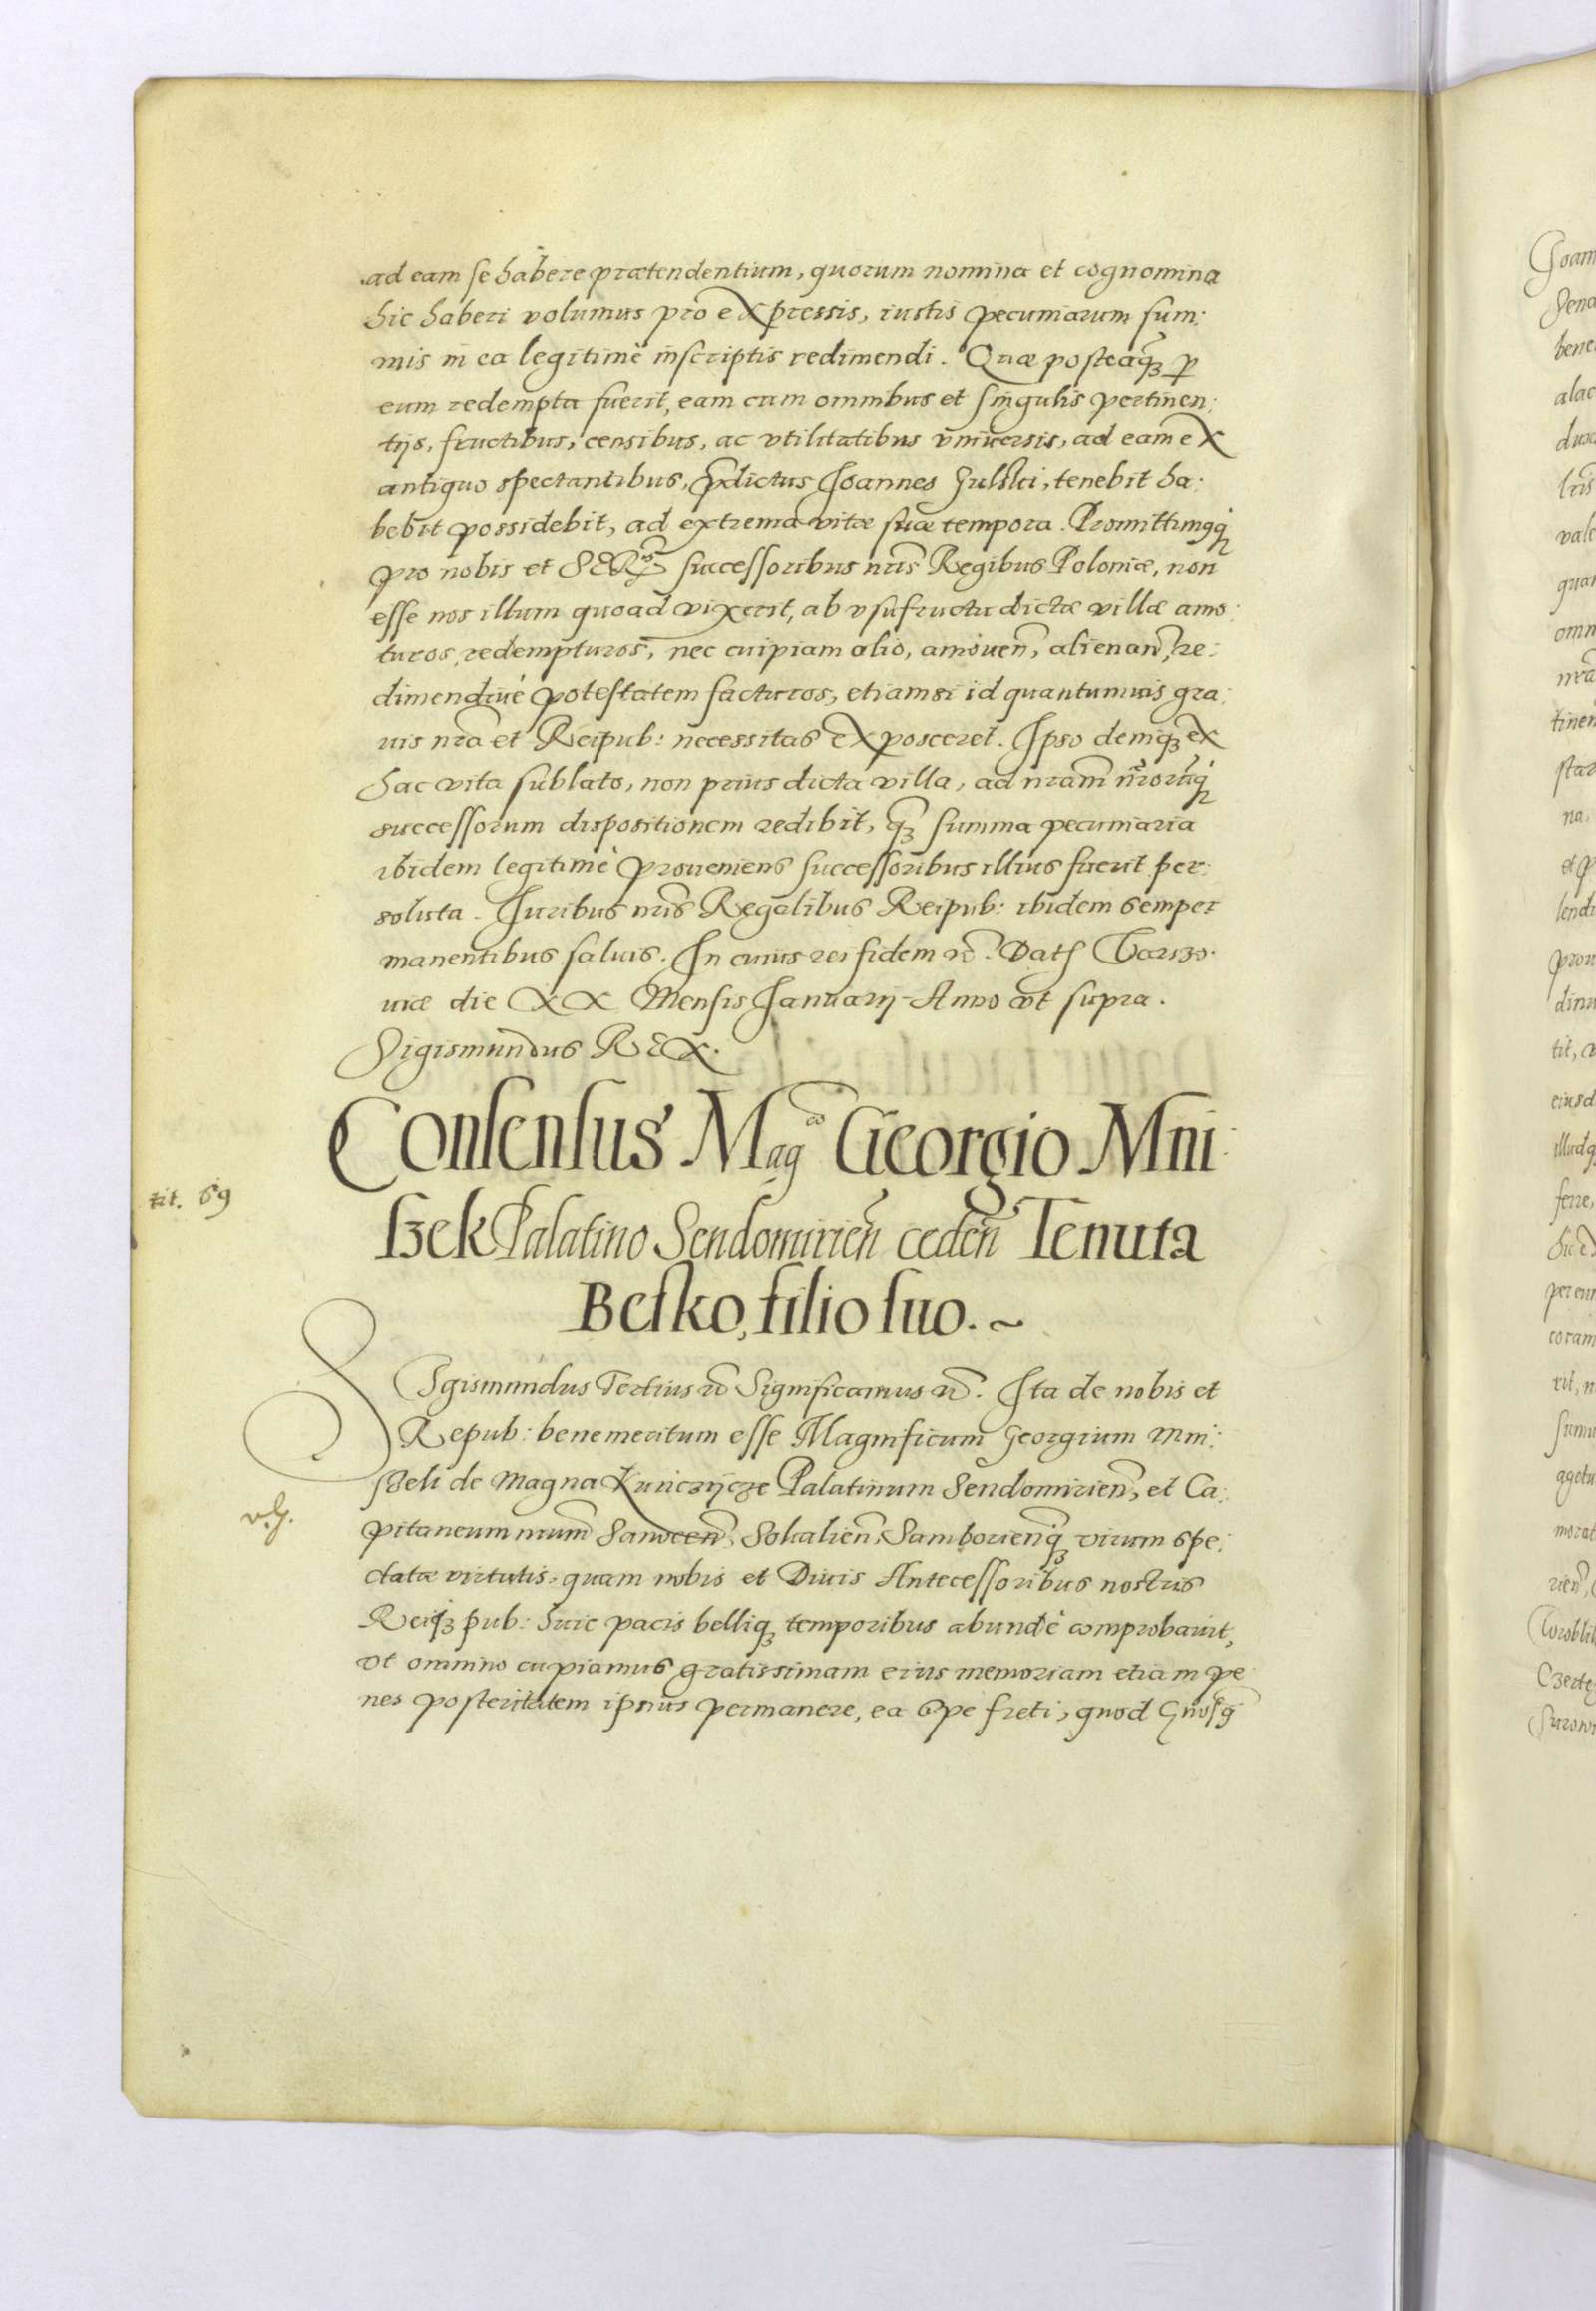 ad eam se habere prætendentium, quorum nomina et cognomina
hic haberi volumus pro expressis, iustis pecuniarum sum:
mis in ea legitimè inscriptis redimendi. Quæ posteaq3 p
eum redempta fuerit, eam cum omnibus et singulis pertinen:
tijs, fructibus, censibus, ac vtilitatibus vniuersis, ad eam ex
antiquo spectantibus, prædictus Joannes Hulski, tenebit ha:
bebit possidebit, ad extrema vitæ suæ tempora. Promittimusq3
pro nobis et SERmis successoribus nris Regibus Poloniæ, non
esse nos illum quoad vixerit, ab vsufructu dictæ villæ amo:
turos, redempturos, nec cuipiam alio, amouen, alienan, re:
dimendiuè potestatem facturos, etiamsi id quantumuis gra:
uis nra et Reipub: necessitas exposceret. Ipso deniq3 ex
hac vita sublato, non prius dicta villa, ad nram nrorumq3
successorum dispositionem redibit, q3 summa pecuniaria
ibidem legitimè proueniens successoribus illius fuerit per:
soluta. Juribus nris Regalibus Reipub: ibidem semper
manentibus saluis. In cuius rei fidem etc. Dat Varso:
uiæ die XX Mensis Januarij Anno vt supra.
Sigismundus REX.
Consensus Magco Georgio Mni:
szek Palatino Sendomirien ceden Tenuta
Besko, filio suo. ~
tit. 69
Sigismundus Tertius etc Significamus etc. Ita de nobis et
Repub: benemeritum esse Magnificum Georgium Mni:
szek de Magna Kunczycze Palatinum Sendomirien, et Ca:
pitaneum nrum Sanocen, Sokalien, Samborienq3 virum spe:
ctatæ virtutis, quam nobis et Diuis Antecessoribus nostris
Reiq3 pub: huic pacis belliq3 temporibus abundè comprobauit,
vt omnino cupiamus gratissimam eius memoriam etiam pe
nes posteritatem ipsius permanere, ea spe freti, quod